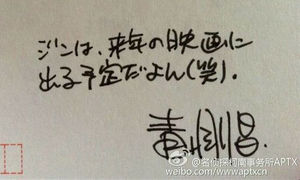 ジンは、来年の映画に
出る予定だよん(笑).
青山剛昌
@名侦探柯南事务所APTX
weibo.com/wwwaptxcn